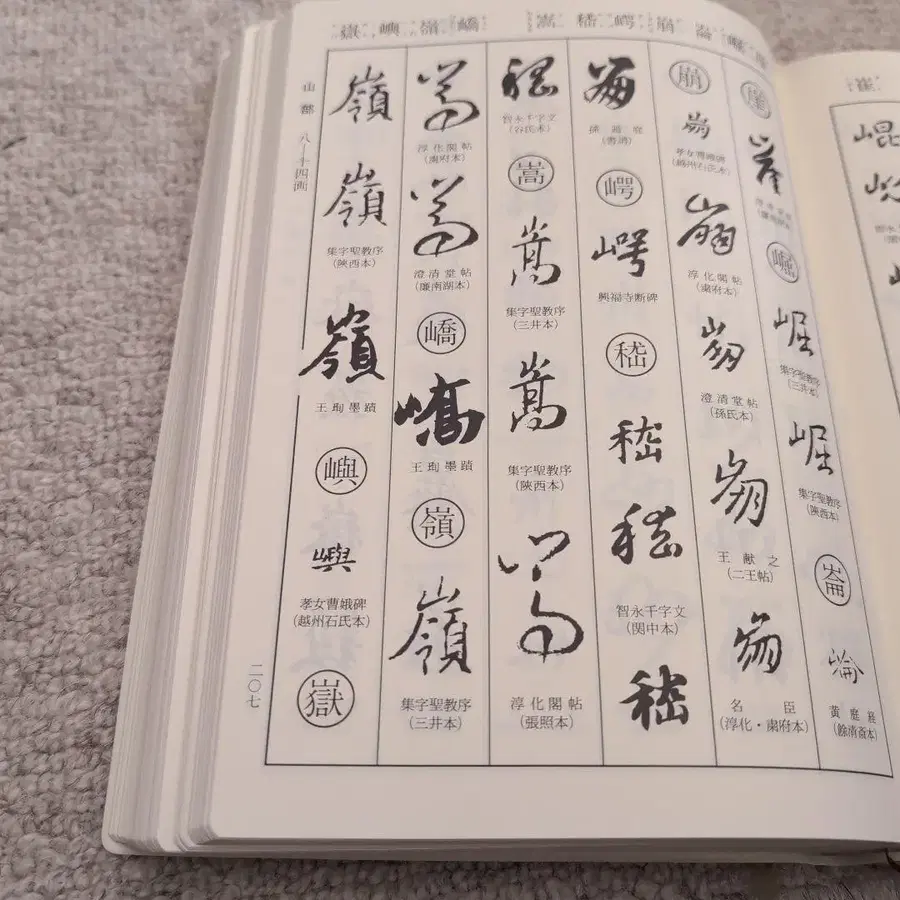 嶽 嶼 嶺 嶠 嵩 嵇 崿 崩 崙
山部 八―十四画
崖
崖
崛
崛
集字聖教序
(三井本)
崛
集字聖教序
(陝西本)
崙
崙
黄庭経
(餘清斎本)
崩
崩
孝女曹娥碑
(越州石氏本)
崩
淳化閣帖
(粛府本)
崩
澄清堂帖
(孫氏本)
崩
王献之
(二王帖)
崩
名臣
(淳化・粛府本)
崩
孫過庭
(書譜)
崿
崿
興福寺断碑
嵇
嵇
嵇
智永千字文
(関中本)
嵇
嵇
智永千字文
(谷氏本)
嵩
嵩
集字聖教序
(三井本)
嵩
集字聖教序
(陝西本)
嵩
淳化閣帖
(張照本)
嵩
淳化閣帖
(粛府本)
嵩
澄清堂帖
(廉南湖本)
嶠
嶠
王珣墨蹟
嶺
嶺
集字聖教序
(三井本)
嶺
嶺
集字聖教序
(陝西本)
嶺
王珣墨蹟
嶼
嶼
孝女曹娥碑
(越州石氏本)
嶽
二〇七